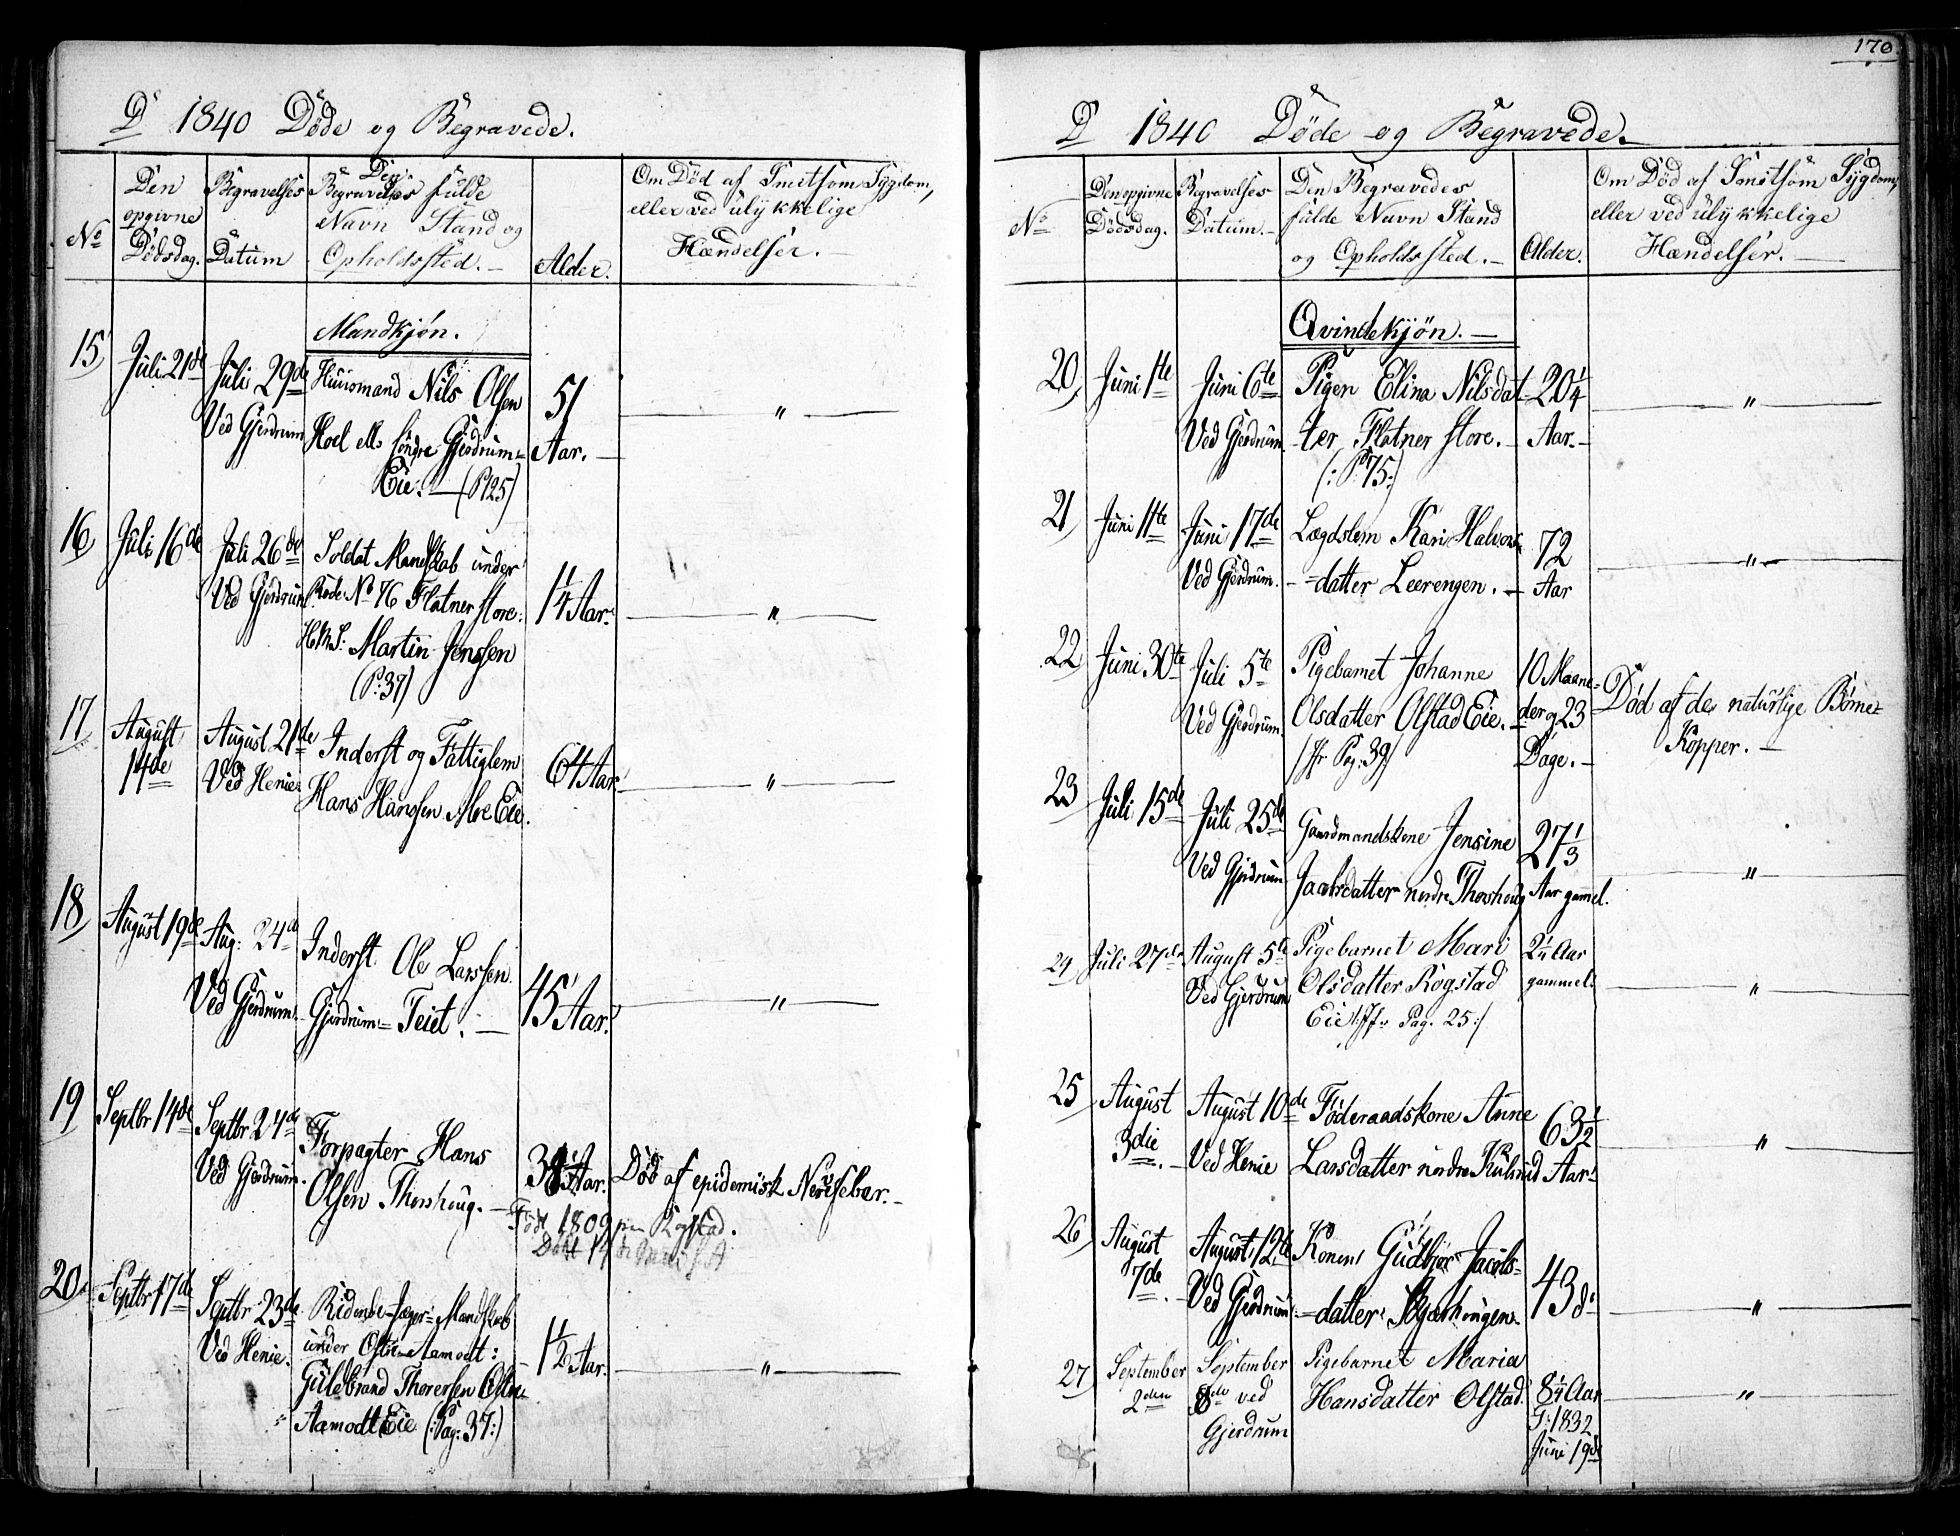 D 1840 Døde og Begravede.
No
Den opgivne Dødsdag.
Begravelses Datum
Den Begravedes fulde Navn Stand og Opholdssted.
Alder.
Om Død af Smitsom Sygdom, eller ved ulykkelige Hændelser.
Mandkjøn.
15 Juli 21de Juli 29de Huusmand Nils Olsen 51
Ved Gjerdrum Hoel søndre Gjerdrum= Aar. "
Eie. (P 125)
16 Juli 16de Juli 26de Soldat Mandskab under 1¼ Aar. "
Ved Gjerdrum Rode No 76 Flatner store:
Martin Jenssen
(P: 37)
17 August August 21de Inderst og Fattiglem 64 Aar "
14de Ved Henie Hans Hanssen Eie.
18 August 19de Aug: 24de Inderst Ole Larssen 45 Aar. "
Ved Gjerdrum Gjerdrum= Teiet.
19 Septbr 14de Septbr 24de Forpagter Hans Aar. Død af epidemisk Nervefeber.
Ved Gjerdrum. Olsen Thorshoug.
Født 1809 Rogstad.
20 Septbr 17de Septbr 23de Ridende Jæger Mandskab 1½ Aar. "
Ved Henie. under Aamodt:
Gulbrand Thoresen
Aamodt Eie (: Pag: 37:)
170
D 1840 Døde og Begravede.
No
Den opgivne Dødsdag.
Begravelses Datum.
Den Begravedes fulde Navn Stand og Opholdssted.
Alder.
Om Død af Smitsom Sygdom, eller ved ulykkelige Hændelser.
Qvindekjön.
20 Juni 1te Juni 6te Pigen Elina Nilsdat 20¼ "
Ved Gjerdrum ter Flatner store. Aar.
(: P: 75:)
21 Juni 11te Juni 17de Lægdslem Kari Halvors 72 "
Ved Gjerdrum. =datter Leerengen. Aar
22 Juni 30te Juli 5te Pigebarnet Johanne 10 Maane= Død af de naturlige Børne=
Ved Gjerdrum Olsdatter Olstad Eie. der og 23 Kopper.
Pag: 39 Dage.
23 Juli 15de Juli 25de Gaardmandskone Jensine 27⅓ "
Ved Gjerdrum nordre Thorshoug Aar gamel.
24 Juli 27de August 5te Pigebarnet Mari 2¼ Aar
Ved Gjerdrum Olsdatter Rogstad gammel. "
Eie Pag. 25:/
25 August August 10de Føderaadskone Anne 63½
3die. Ved Henie Larsdatter nordre Kulsrud Aar "
26 August August 12te Konen Gudbjør Jacobs= 43
7de Ved Gjerdrum =datter "
27 September September Pigebarnet Maria
2den 8de ved Hansdatter Olstad 8¼ Aar "
Gjerdrum 1832
Juni 19de